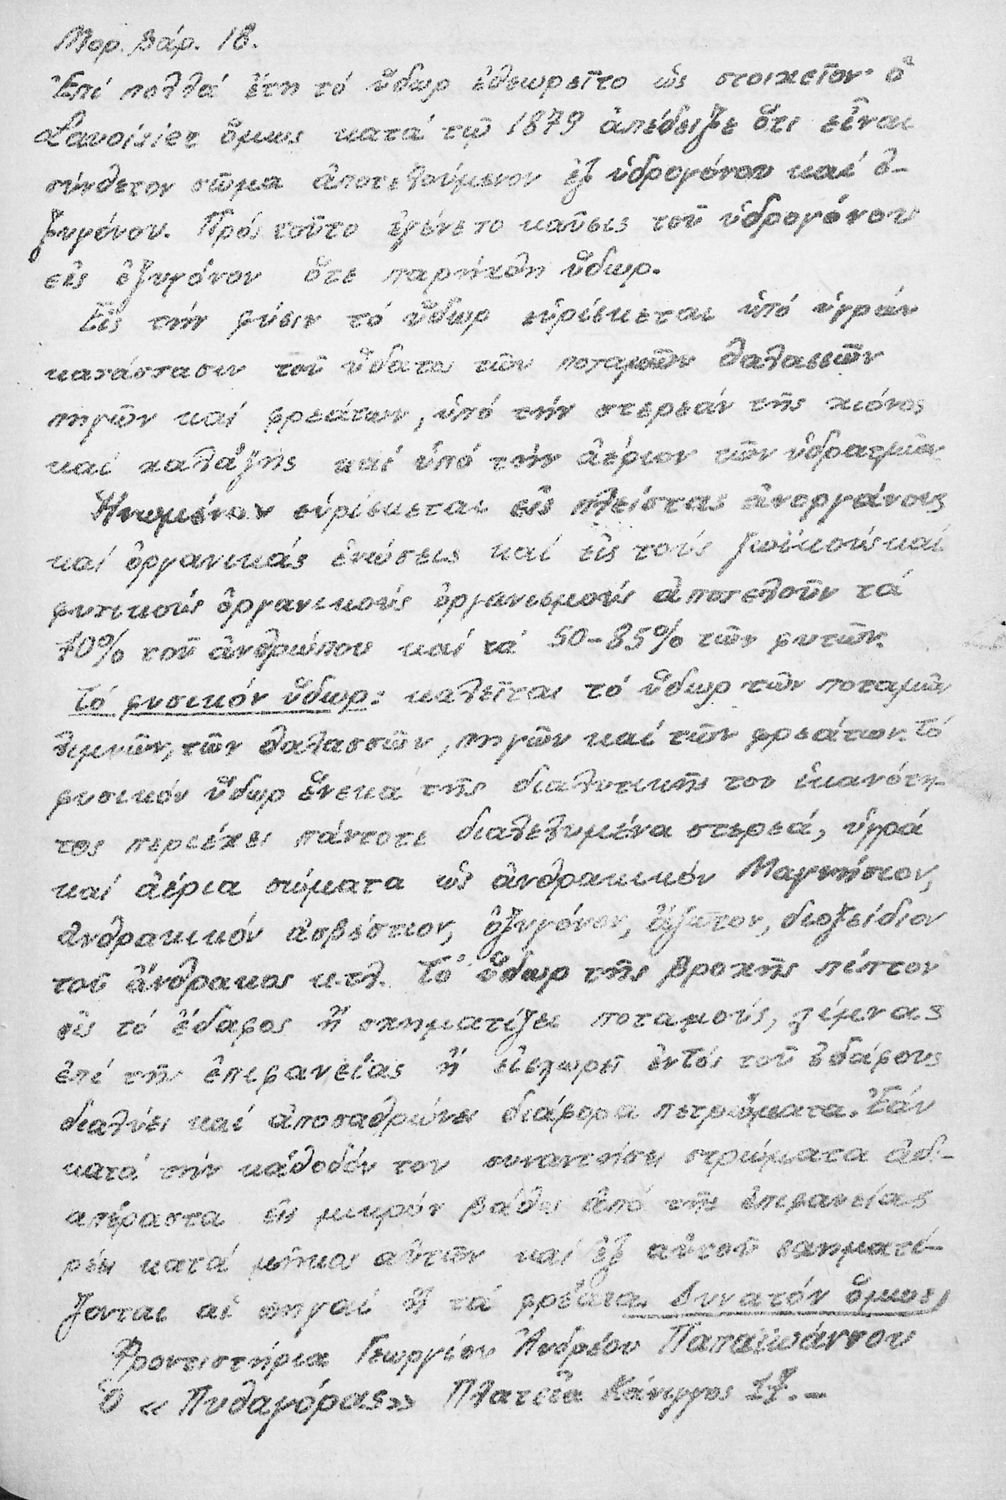 Μορ. Βάρ. 18.
Ἐπί πολλά ἔτη τό ὕδωρ ἐθεωρεῖτο ὡς στοιχεῖον· ὁ
Lavoisier ὅμως κατά τῷ 1879 ἀπέδειξε ὅτι εἶναι
σύνθετον σῶμα ἀποτελούμενον ἐξ ὑδρογόνου καί ὀ-
ξυγόνου. Πρός τοῦτο ἐγένετο καῦσις τοῦ ὑδρογόνου
εἰς ὀξυγόνον ὅτε παρήχθη ὕδωρ.
Εἰς τήν φύσιν τό ὕδωρ εὑρίσκεται ὑπό ὑγράν
κατάστασιν τοῦ ὕδατος τῶν ποταμῶν θαλασσῶν
πηγῶν καί φρεάτων, ὑπό τήν στερεάν τῆς χιόνος
καί χαλάζης καί ὑπό τήν ἀέριον τῶν ὑδρατμῶν
Ἡνωμένον εὑρίσκεται εἰς πλείστας ἀνοργάνους
καί ὀργανικάς ἑνώσεις καί εἰς τούς ζωϊκούς καί
φυτικούς ὀργανικούς ὀργανισμούς ἀποτελοῦν τά
70% τοῦ ἀνθρώπου καί τά 50-85% τῶν φυτῶν.
Τό φυσικόν ὕδωρ: καλεῖται τό ὕδωρ τῶν ποταμῶν
λιμνῶν, τῶν θαλασσῶν, πηγῶν καί τῶν φρεάτων. Τό
φυσικόν ὕδωρ ἕνεκα τῆς διαλυτικῆς του ἱκανότη-
τος περιέχει πάντοτε διαλελυμένα στερεά, ὑγρά
καί ἀέρια σώματα ὡς ἀνθρακικόν Μαγνήσιον,
ἀνθρακικόν ἀσβέστιον, ὀξυγόνον, ἄζωτον, διοξείδιον
τοῦ ἄνθρακος κ.τ.λ. Τό ὕδωρ τῆς βροχῆς πίπτον
εἰς τό ἔδαφος ἤ σχηματίζει ποταμούς, λίμνας
ἐπί τῆς ἐπιφανείας ἤ εἰσχωρεῖ ἐντός τοῦ ἐδάφους
διαλύει καί ἀποσαθρώνει διάφορα πετρώματα. Ἐάν
κατά τήν κάθοδόν του συναντήσει στρώματα ἀδι-
απέραστα εἰς μικρόν βάθος ἀπό τῆς ἐπιφανείας
ρέει κατά μῆκος αὐτῶν καί ἐξ αὐτοῦ σχηματί-
ζονται αἱ πηγαί ἤ τά φρέατα. Δυνατόν ὅμως,
Φροντιστήρια Γεωργίου Ἀνδρέου Παπαϊωάννου
Ὁ «Πυθαγόρας» Πλατεῖα Κάνιγγος 17.-